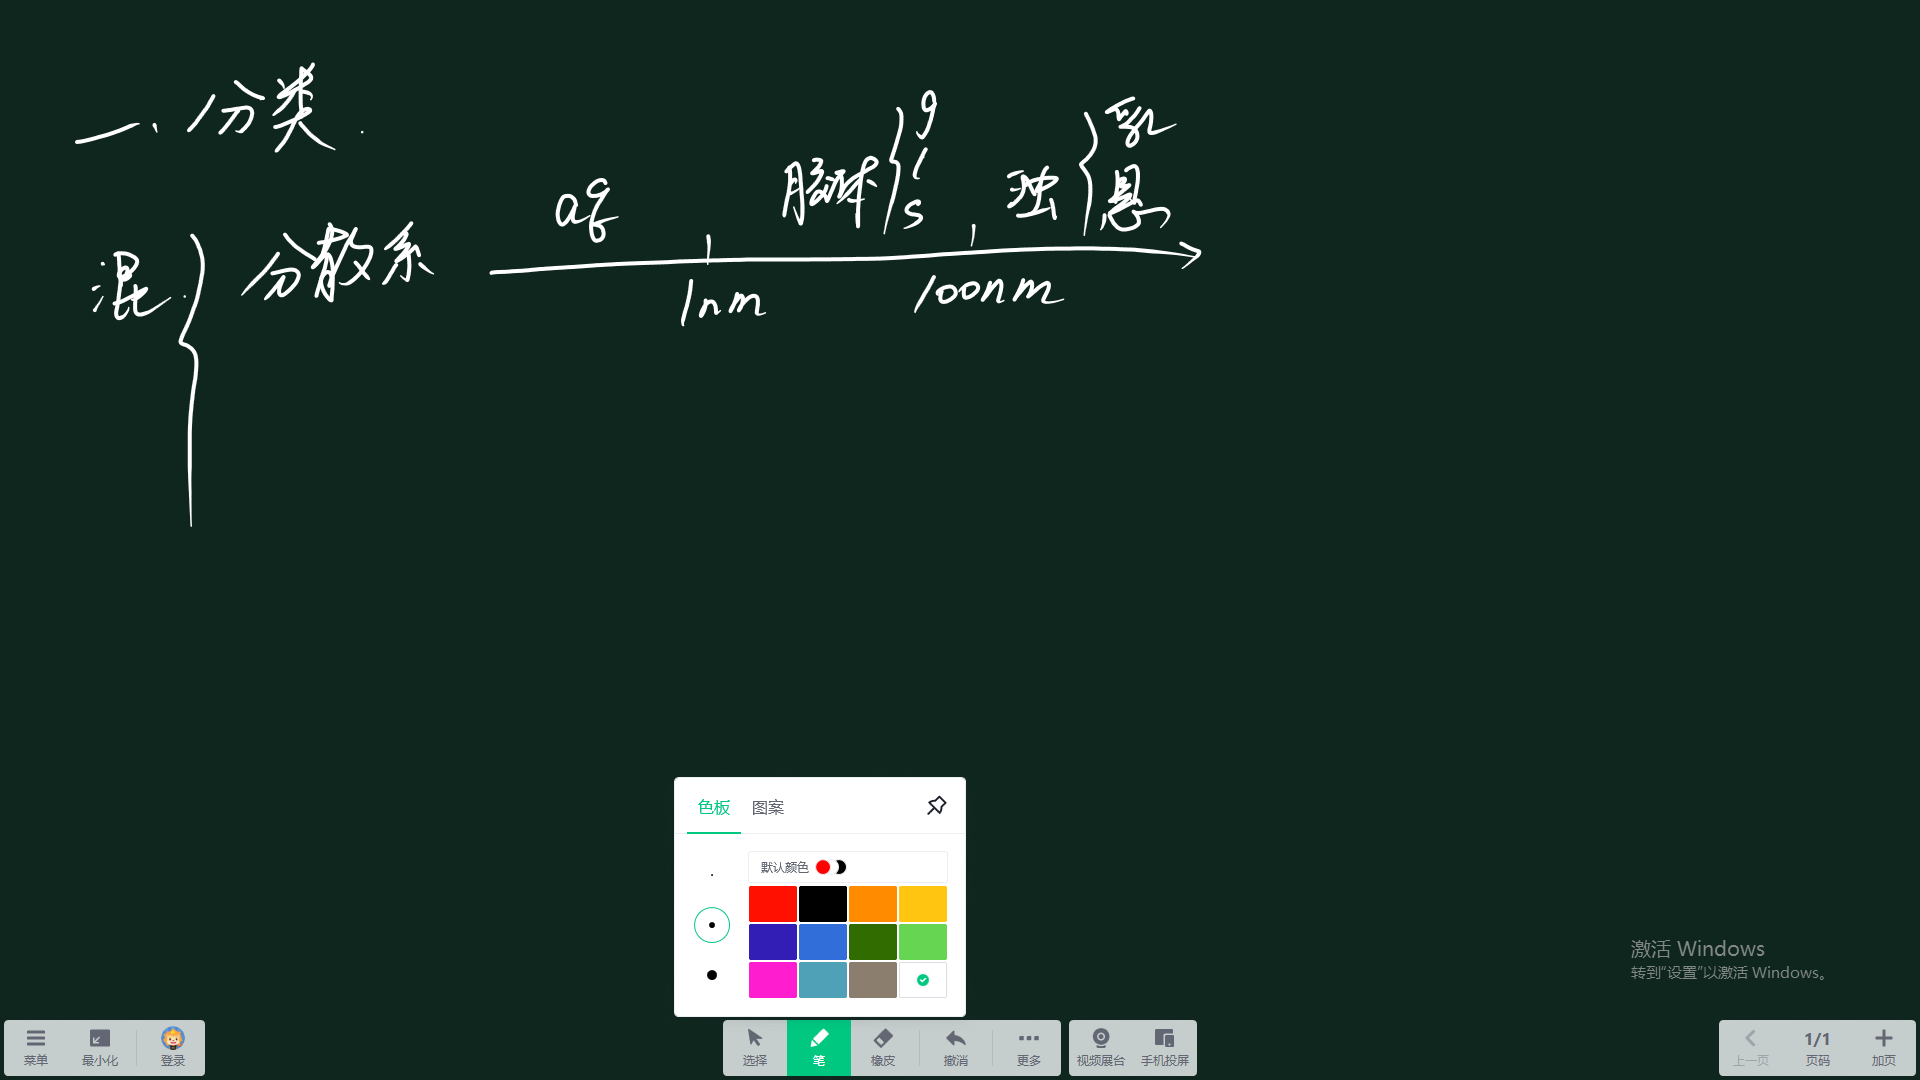 一、分类.
混. 分散系
aq 胶体 g l s 浊 乳 悬
1nm 100nm
色板 图案
默认颜色
激活 Windows
转到“设置”以激活 Windows。
菜单 最小化 登录 选择 笔 橡皮 撤消 更多 视频展台 手机投屏 上一页 1/1 页码 加页